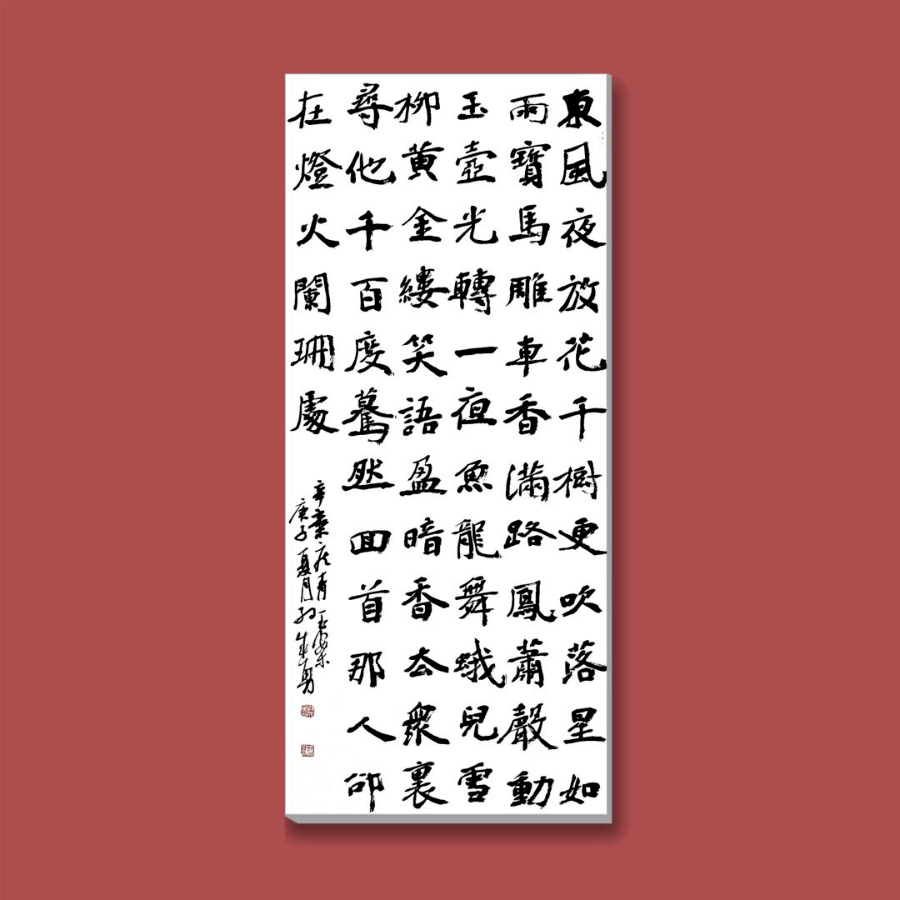 東風夜放花千樹更吹落星如
雨寶馬雕車香滿路鳳蕭聲動
玉壺光轉一夜魚龍舞蛾兒雪
柳黃金縷笑語盈暗香去衆裏
尋他千百度驀然回首那人卻
在燈火闌珊處
辛棄疾青玉案
庚子夏月